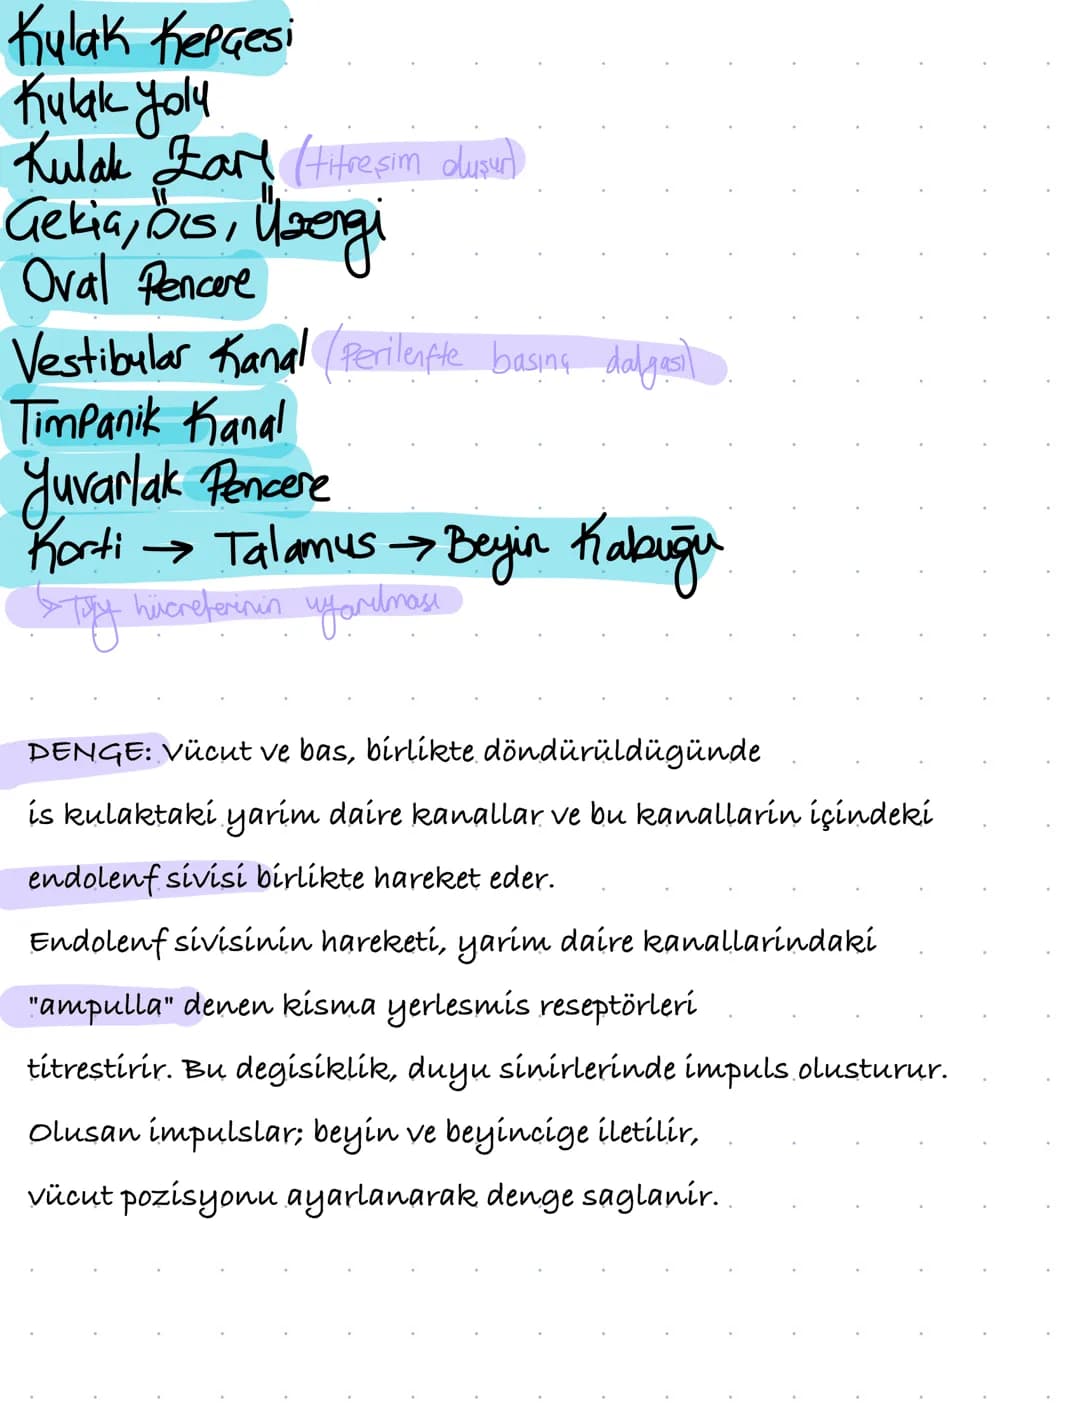 Kulak Kepçesi
Kulak yolu
Kulak Zarı (titreşim oluşur)
Çekiç, Örs, Üzengi
Oval Pencere
Vestibular Kanal (Perilenfte basınç dalgası)
Timpanik Kanal
Yuvarlak Pencere
Korti → Talamus → Beyin Kabuğu
↳ Tüy hücrelerinin uyarılması
DENGE: Vücut ve bas, birlikte döndürüldügünde
is kulaktaki yarim daire kanallar ve bu kanallarin içindeki
endolenf sivisi birlikte hareket eder.
Endolenf sivisinin hareketi, yarim daire kanallarindaki
"ampulla" denen kisma yerlesmis reseptörleri
titrestirir. Bu degisiklik, duyu sinirlerinde impuls olusturur.
Olusan impulslar; beyin ve beyincige iletilir,
vücut pozisyonu ayarlanarak denge saglanir.